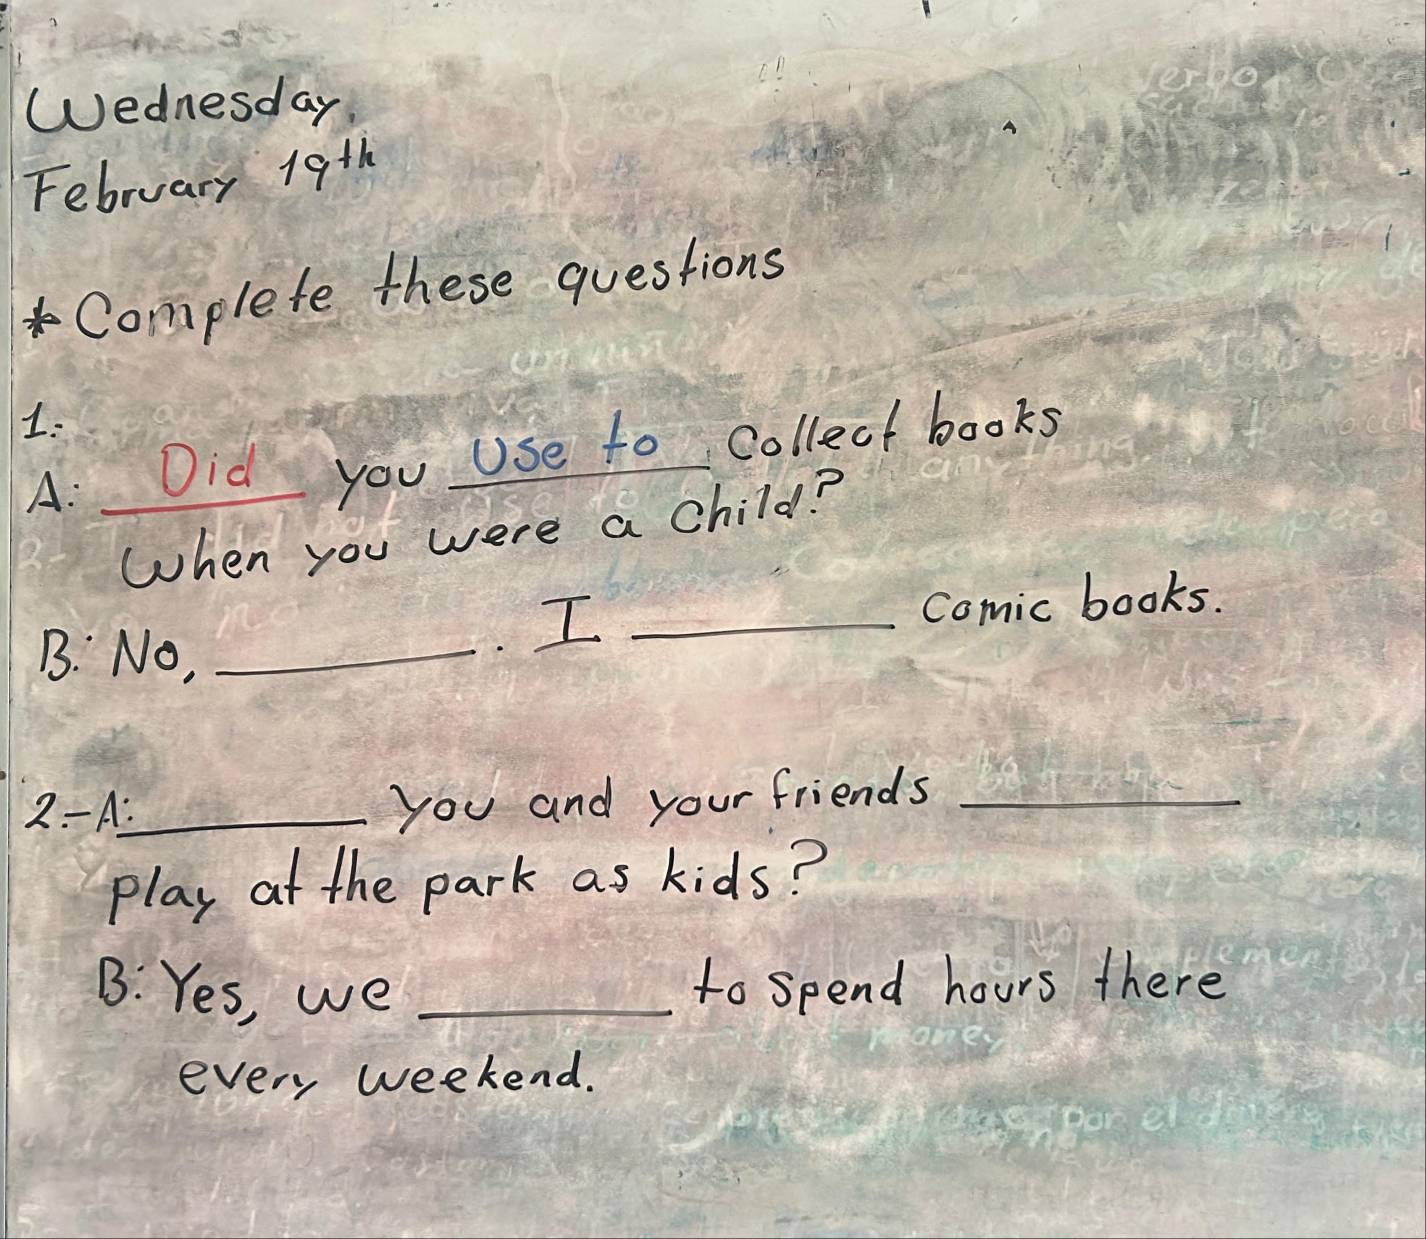 Wednesday,
February 19th
* Complete these questions
1.-
A: Did you use to collect books
when you were a child?
B: No, ________. I ________ comic books.
2.-A: ________ you and your friends ________
play at the park as kids?
B: Yes, we ________ to spend hours there
every weekend.